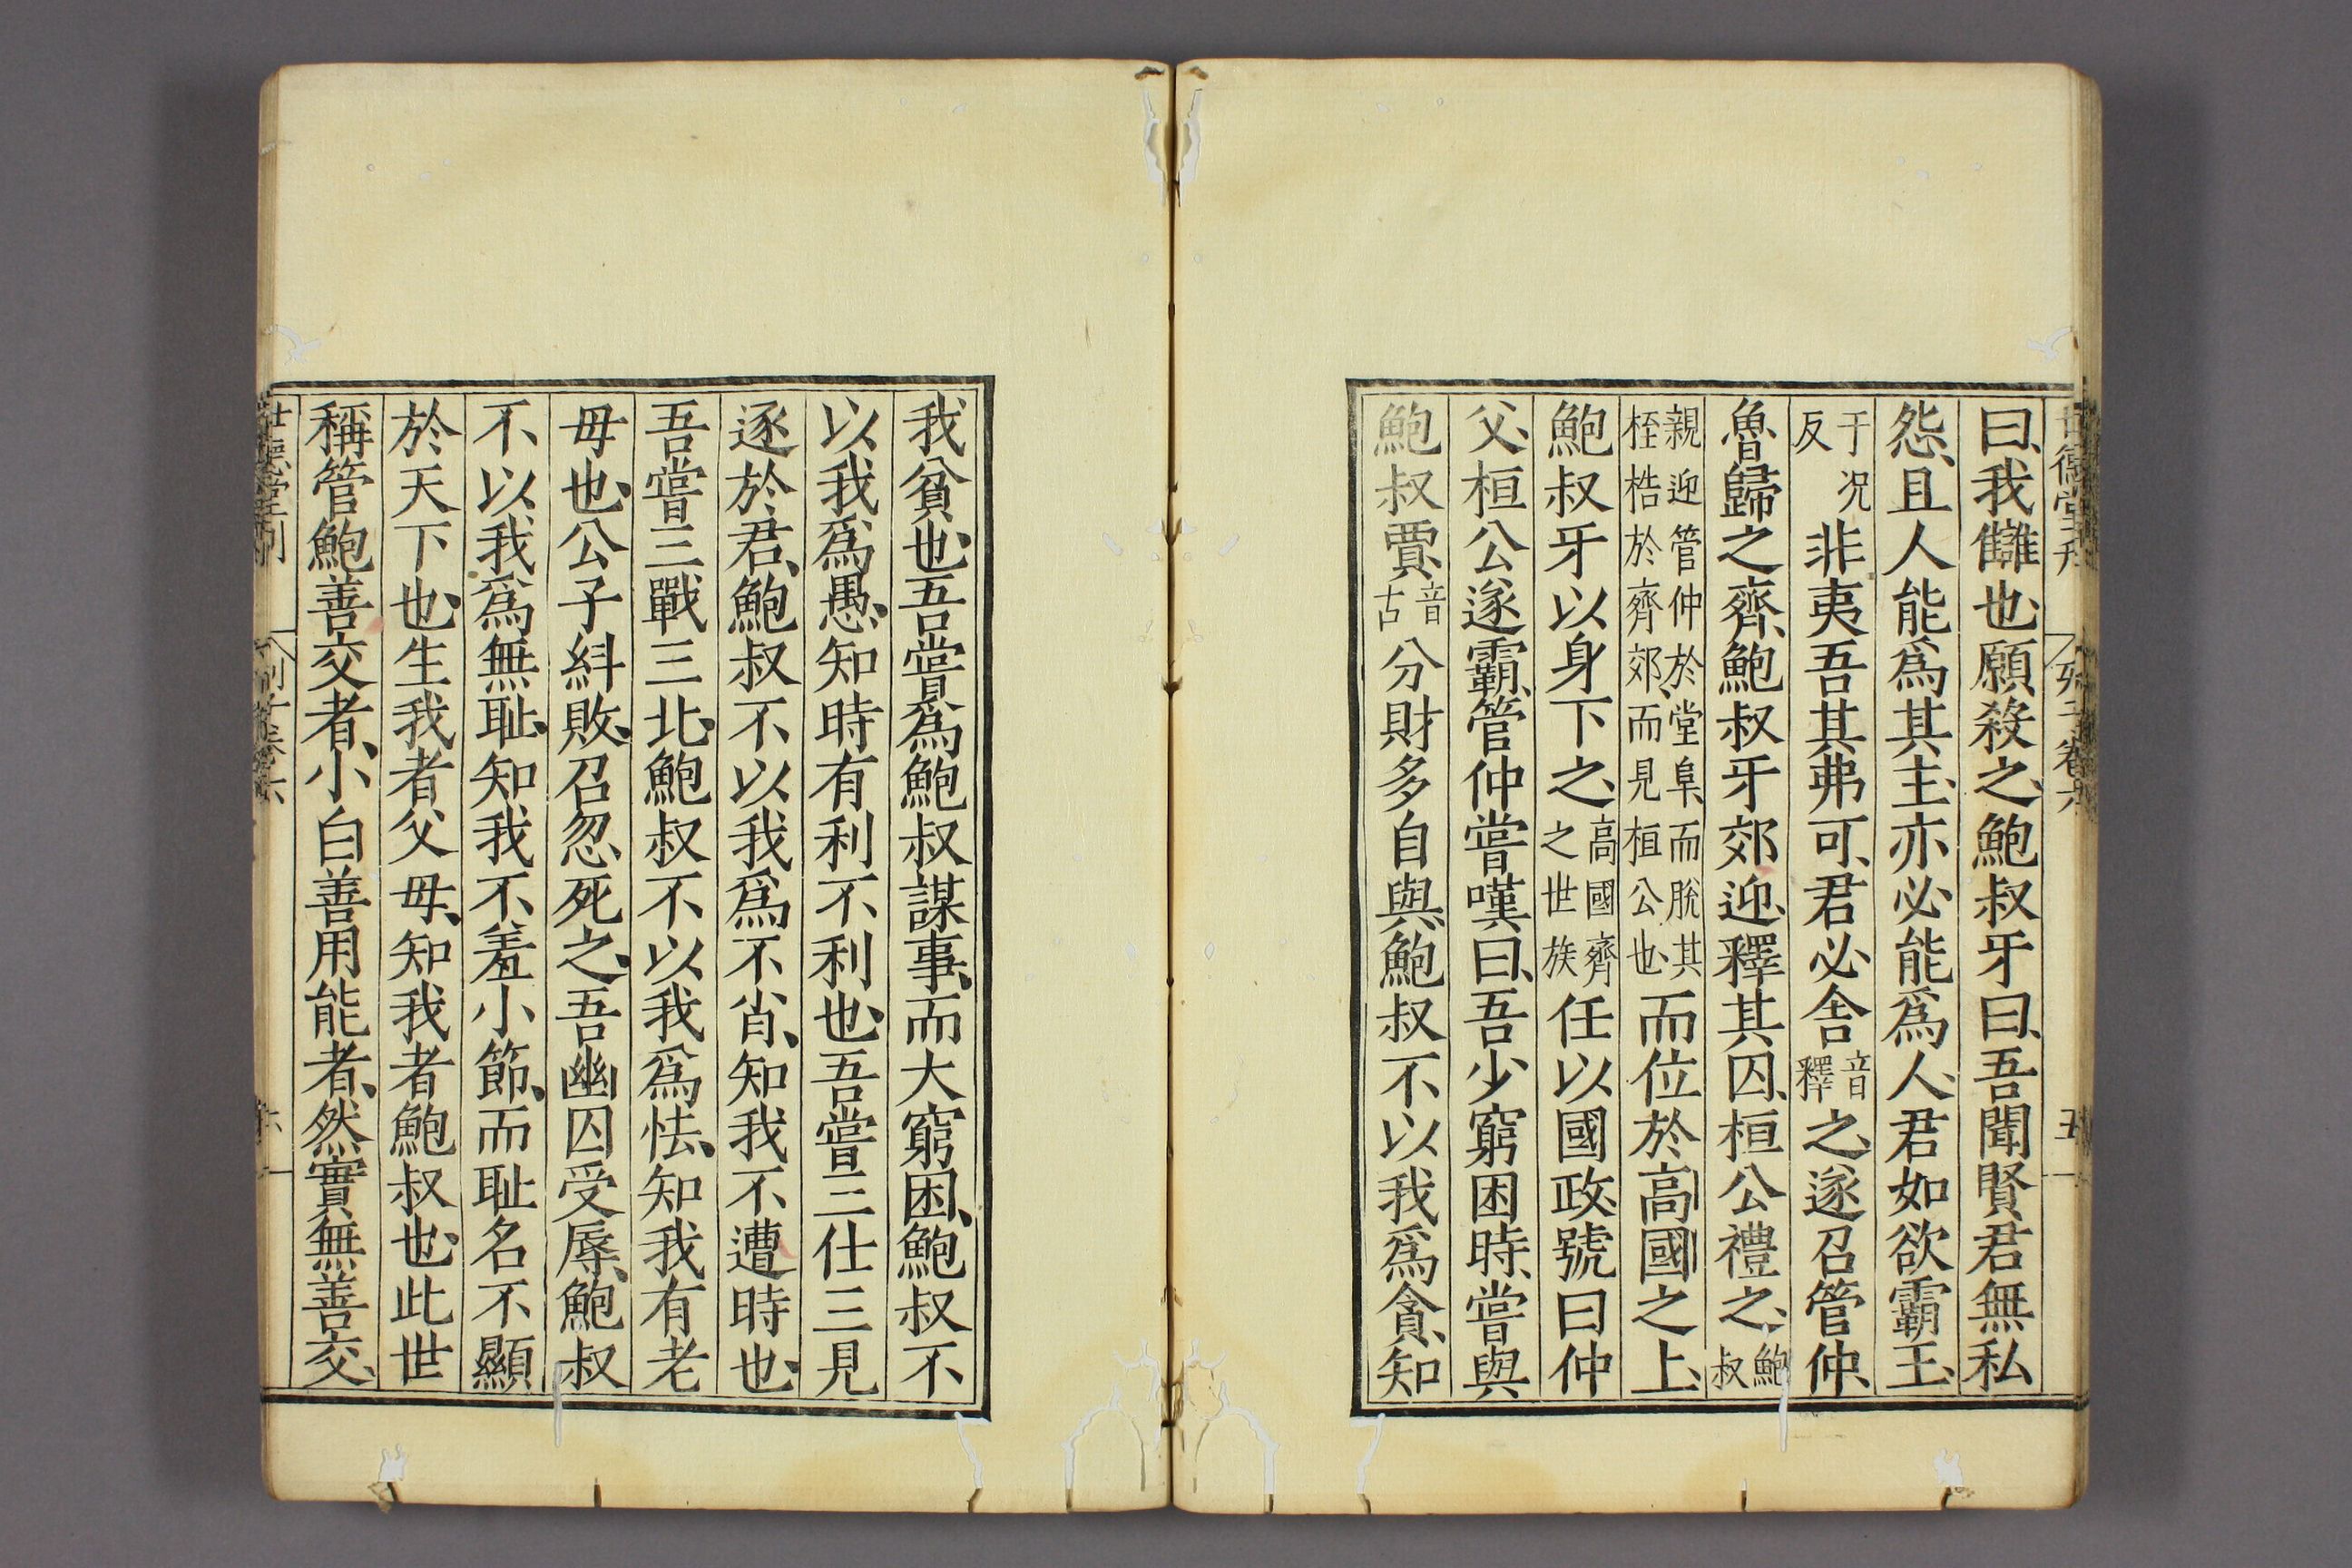 曰、我讎也、願殺之、鮑叔牙曰、吾聞賢君無私
怨、且人能爲其主、亦必能爲人、君如欲霸王、
于况反非夷吾其弗可、君必舍音釋之、遂召管仲、
魯歸之齊、鮑叔牙郊迎、釋其囚、桓公禮之、鮑叔
親迎管仲於堂阜、而脫其桎梏於齊郊、而見桓公也、而位於高國之上、
鮑叔牙以身下之、高國齊之世族任以國政、號曰仲
父、桓公遂霸、管仲嘗嘆曰、吾少窮困時、嘗與
鮑叔賈、音古分財多自與、鮑叔不以我爲貪、知
我貧也、吾嘗爲鮑叔謀事、而大窮困、鮑叔不
以我爲愚、知時有利不利也、吾嘗三仕三見
逐於君、鮑叔不以我爲不肖、知我不遭時也、
吾嘗三戰三北、鮑叔不以我爲怯、知我有老
母也、公子糾敗、召忽死之、吾幽囚受辱、鮑叔
不以我爲無恥、知我不羞小節、而恥名不顯
於天下也、生我者父母、知我者鮑叔也、此世
稱管鮑善交者、小白善用能者、然實無善交、